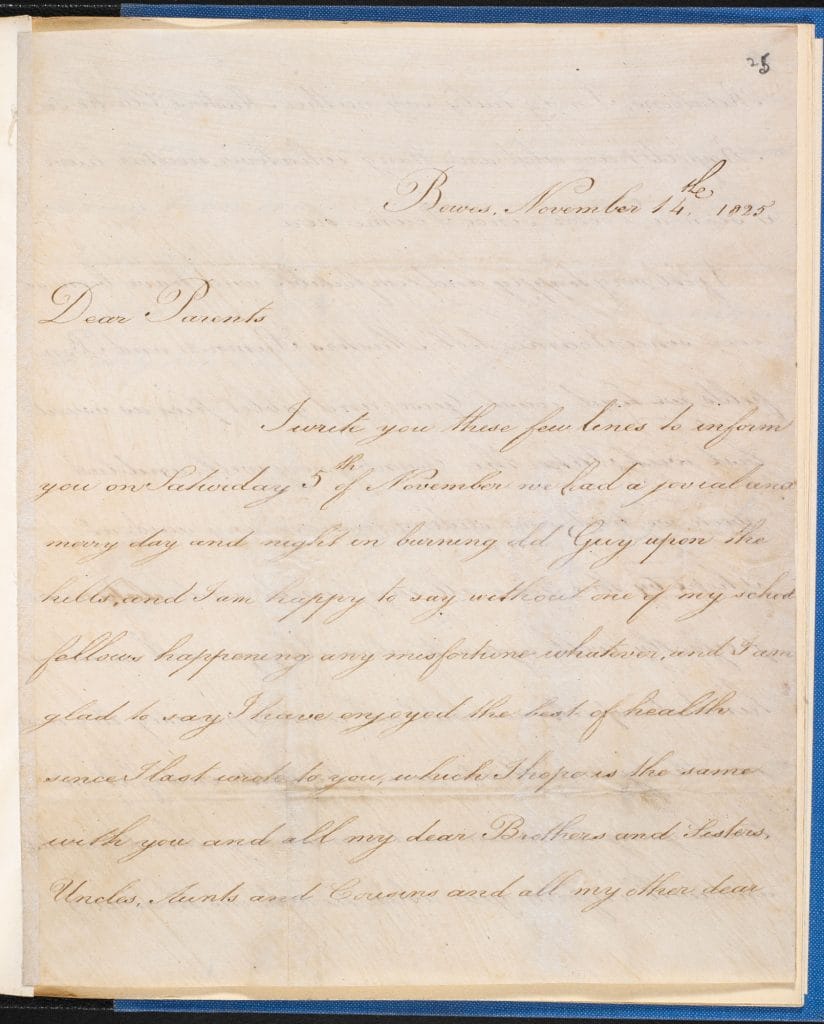 25
Bowes, November 14,the 1825
Dear Parents
I write you these few lines to inform
you on Saturday 5th of November we had a jovial and
merry day and night in burning old Guy upon the
hills, and I am happy to say without one of my school
fellows happening any misfortune whatever, and I am
glad to say I have enjoyed the best of health
since I last wrote to you, which I hope is the same
with you and all my dear Brothers and Sisters,
Uncles, Aunts and Cousins and all my other dear